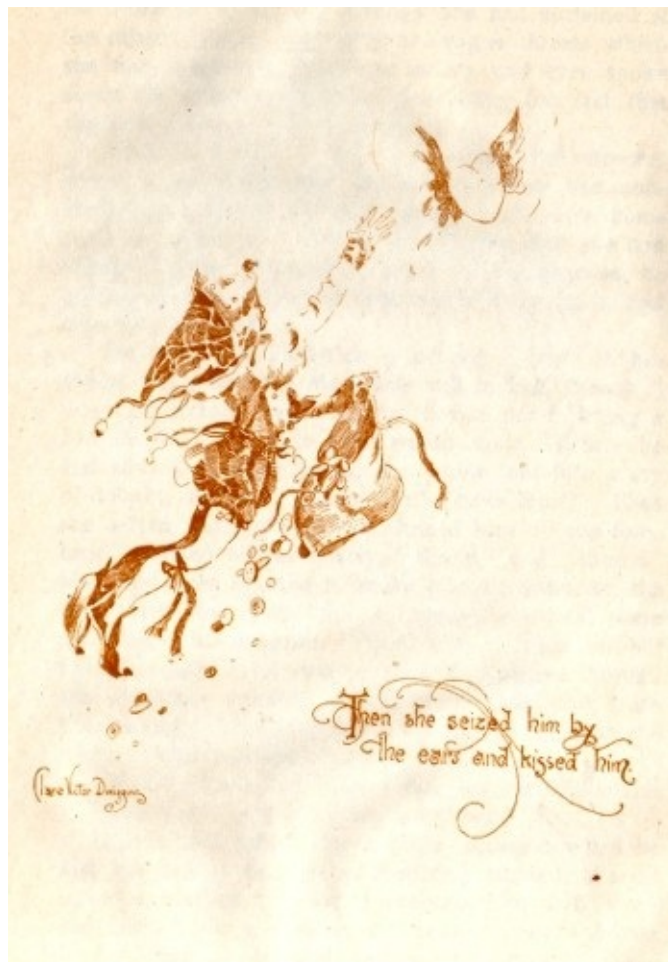 Then she seized him by
the ears and kissed him.
Clare Victor Dwiggins